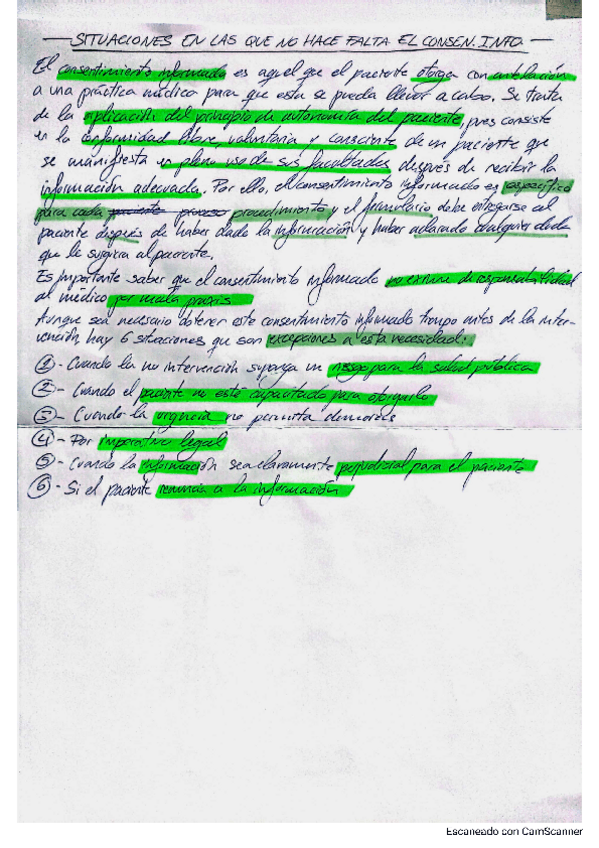 SITUACIONES EN LAS QUE NO HACE FALTA EL CONSEN. INFO.
El consentimiento informado es aquel que el paciente otorga con antelación
a una práctica médica para que esta se pueda llevar a cabo. Se trata
de la aplicación del principio de autonomía del paciente, pues consiste
en la conformidad libre, voluntaria y consciente de un paciente que
se manifiesta en pleno uso de sus facultades después de recibir la
información adecuada. Por ello, el consentimiento informado es específico
para cada paciente proceso procedimiento y el formulario debe entregarse al
paciente después de haber dado la información y haber aclarado cualquier duda
que le surgiera al paciente.
Es importante saber que el consentimiento informado no exime de responsabilidad
al médico por mala praxis.
Aunque sea necesario obtener este consentimiento informado tiempo antes de la inter-
vención, hay 6 situaciones que son excepciones a esta necesidad:
1- Cuando la no intervención suponga un riesgo para la salud pública
2- Cuando el paciente no esté capacitado para otorgarlo
3- Cuando la urgencia no permita demoras
4- Por imperativo legal
5- Cuando la información sea claramente perjudicial para el paciente
6- Si el paciente renuncia a la información
Escaneado con CamScanner